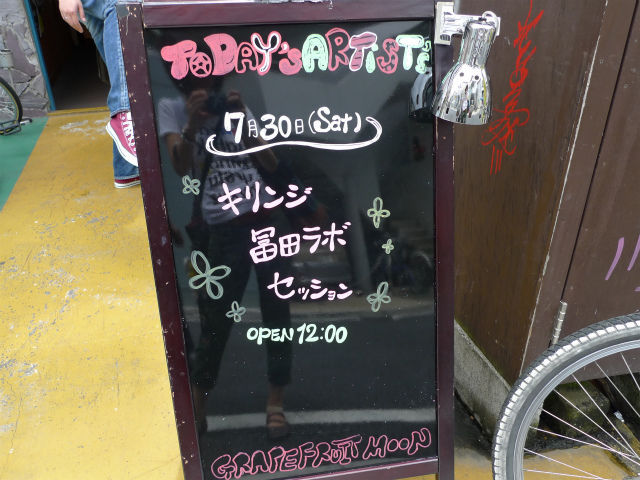 TODAY'S ARTIST
7月30日(Sat)
キリンジ
冨田ラボ
セッション
OPEN 12:00
GRAPEFRUIT MOON